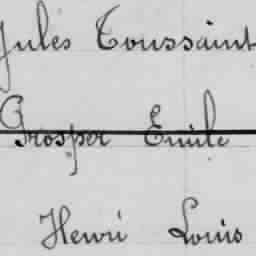 Jules Toussaint
Prosper Emile
Henri Louis